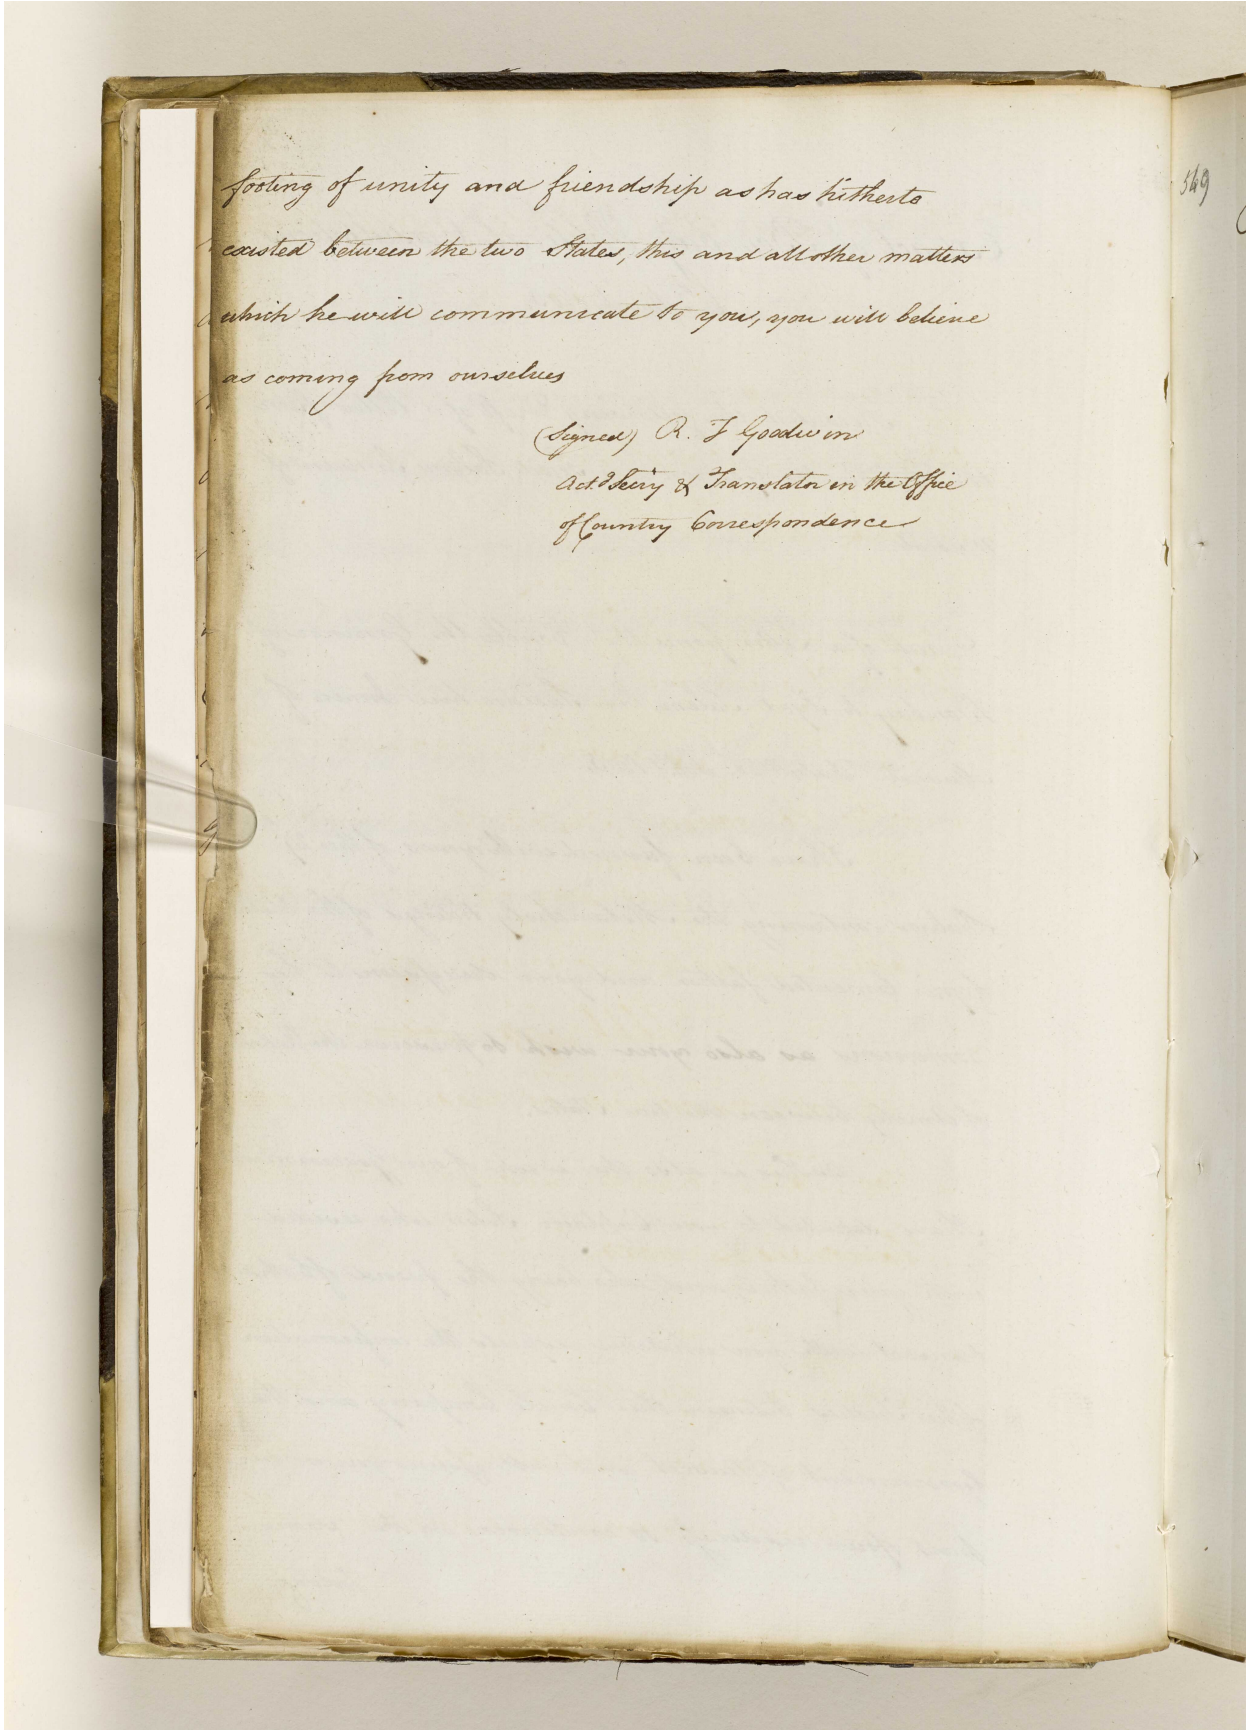 footing of unity and friendship as has hitherto
existed between the two States, this and all other matters
which he will communicate to you, you will believe
as coming from ourselves
(Signed) R. F Goodwin
Actg Secry & Translator in the Office
of Country Correspondence
549